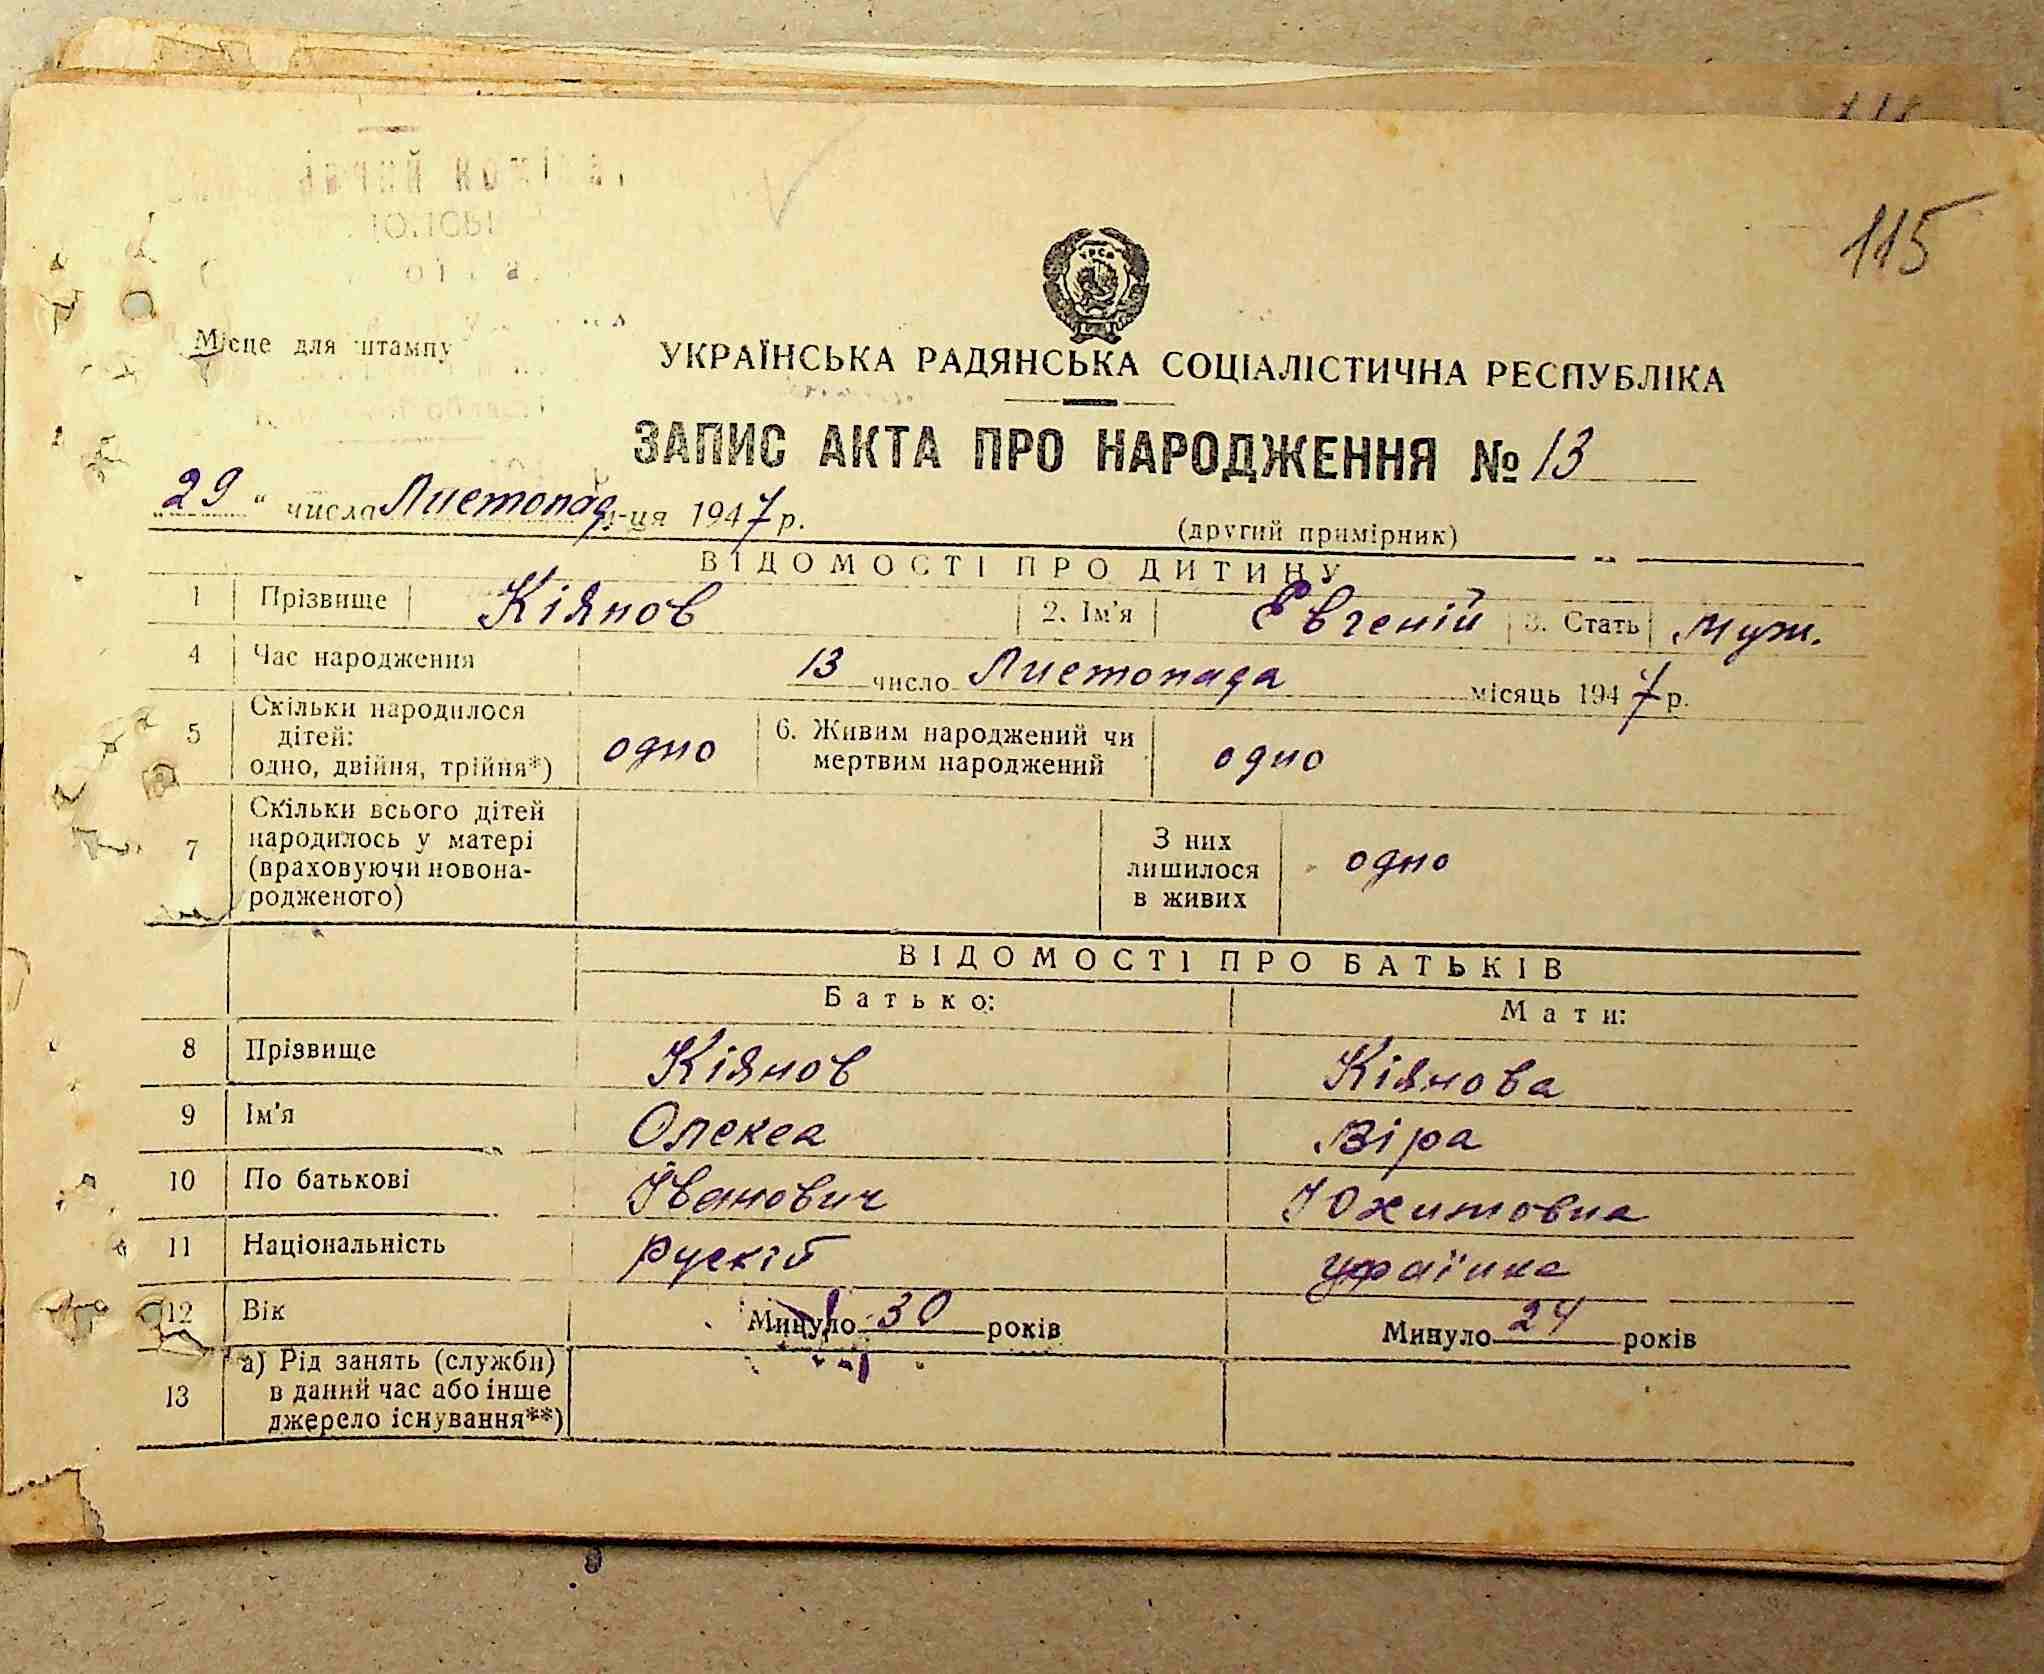 115
УРСР
Місце для штампу
УКРАЇНСЬКА РАДЯНСЬКА СОЦІАЛІСТИЧНА РЕСПУБЛІКА
ЗАПИС АКТА ПРО НАРОДЖЕННЯ № 13
„29“ числа Листопад м-ця 1947 р.
(другий примірник)
ВІДОМОСТІ ПРО ДИТИНУ
1 Прізвище Кіянов 2. Ім'я Євгеній 3. Стать Муж.
4 Час народження 13 число Листопада місяць 1947 р.
5 Скільки народилося дітей: одно, двійня, трійня*) одно 6. Живим народжений чи мертвим народжений одно
7 Скільки всього дітей народилось у матері (враховуючи новонародженого) З них лишилося в живих одно
ВІДОМОСТІ ПРО БАТЬКІВ
Батько: Мати:
8 Прізвище Кіянов Кіянова
9 Ім'я Олекса Віра
10 По батькові Іванович
11 Національність Рускій українка
12 Вік Минуло 30 років Минуло 24 років
13 а) Рід занять (служби) в даний час або інше джерело існування**)